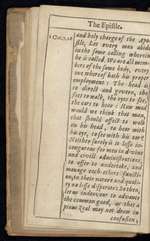 The Epistle.
1 Cor.7.20
and holy charge of the Apo-
stle, Let every man abide
in the same calling wherein
he is called. We are all mem-
bers of the same body, every
one whereof hath his proper
employment: The head is
to direct and govern, the
feet to walk, the eyes to see,
the ears to hear: How mad
would we think that man,
that should affect to walk
on his head, to hear with
his eye, to see with his ear?
Neither surely is it lesse in-
congruous for men in divine
and civill administrations,
to offer to undertake, and
manage each others functi-
ons, in their nature and quali-
ty no lesse disparate: So then,
let us endeavour to advance
the common good, as that a
pious zeal may not draw in
confusion,